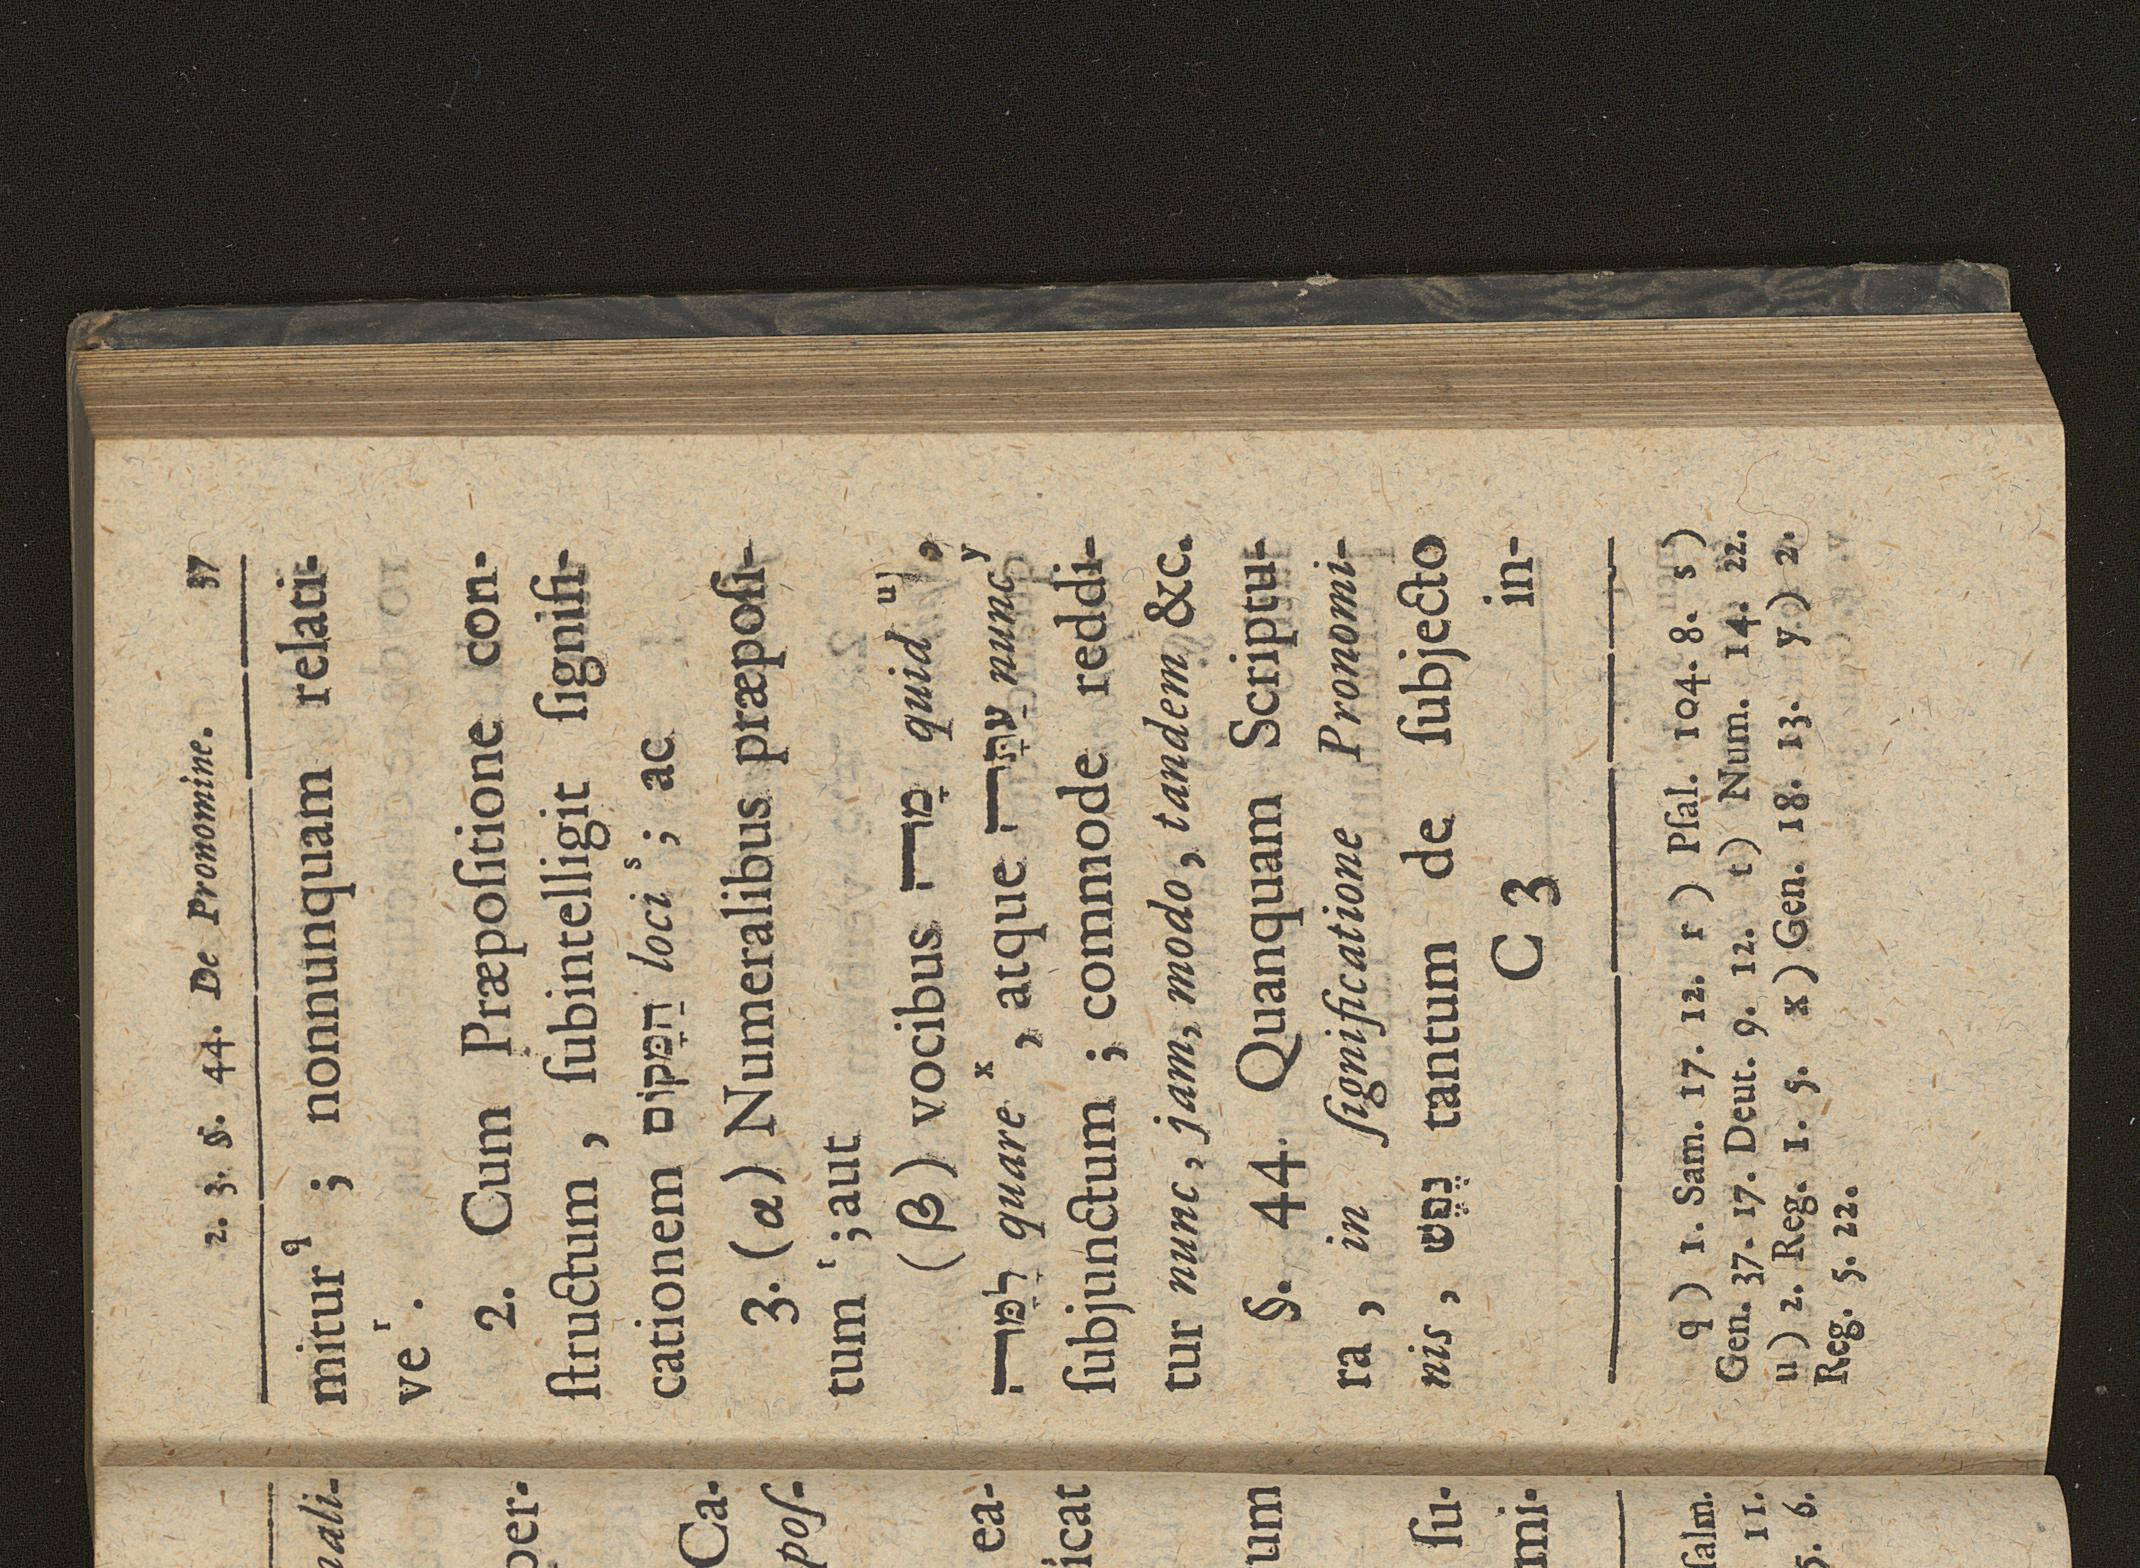 2. 3. §. 44. De Pronomine. 37
mitur q ; nonnunquam relati-
ve r .
2. Cum Præpoſitione con-
ſtructum , ſubintelligit ſignifi-
cationem הַמָּקוֹם loci s ; ac
3. (α) Numeralibus præpoſi-
tum t ; aut
(β) vocibus מָה quid u) ,
לָמָּה quare x , atque עַתָּה nunc y
ſubjunctum ; commode reddi-
tur nunc, jam, modo, tandem &c.
§. 44. Quanquam Scriptu-
ra , in ſignificatione Pronomi-
nis , נֶפֶשׁ tantum de ſubjecto
C 3 in-
q ) 1. Sam. 17. 12. r ) Pſal. 104. 8. s )
Gen. 37. 17. Deut. 9. 12. t) Num. 14. 22.
u ) 2. Reg. 1. 5. x ) Gen. 18. 13. y ) 2.
Reg. 5. 22.
nali-
per-
Ca-
poſ-
ea-
icat
um
ſu-
mi-
ſalm.
11.
5. 6.